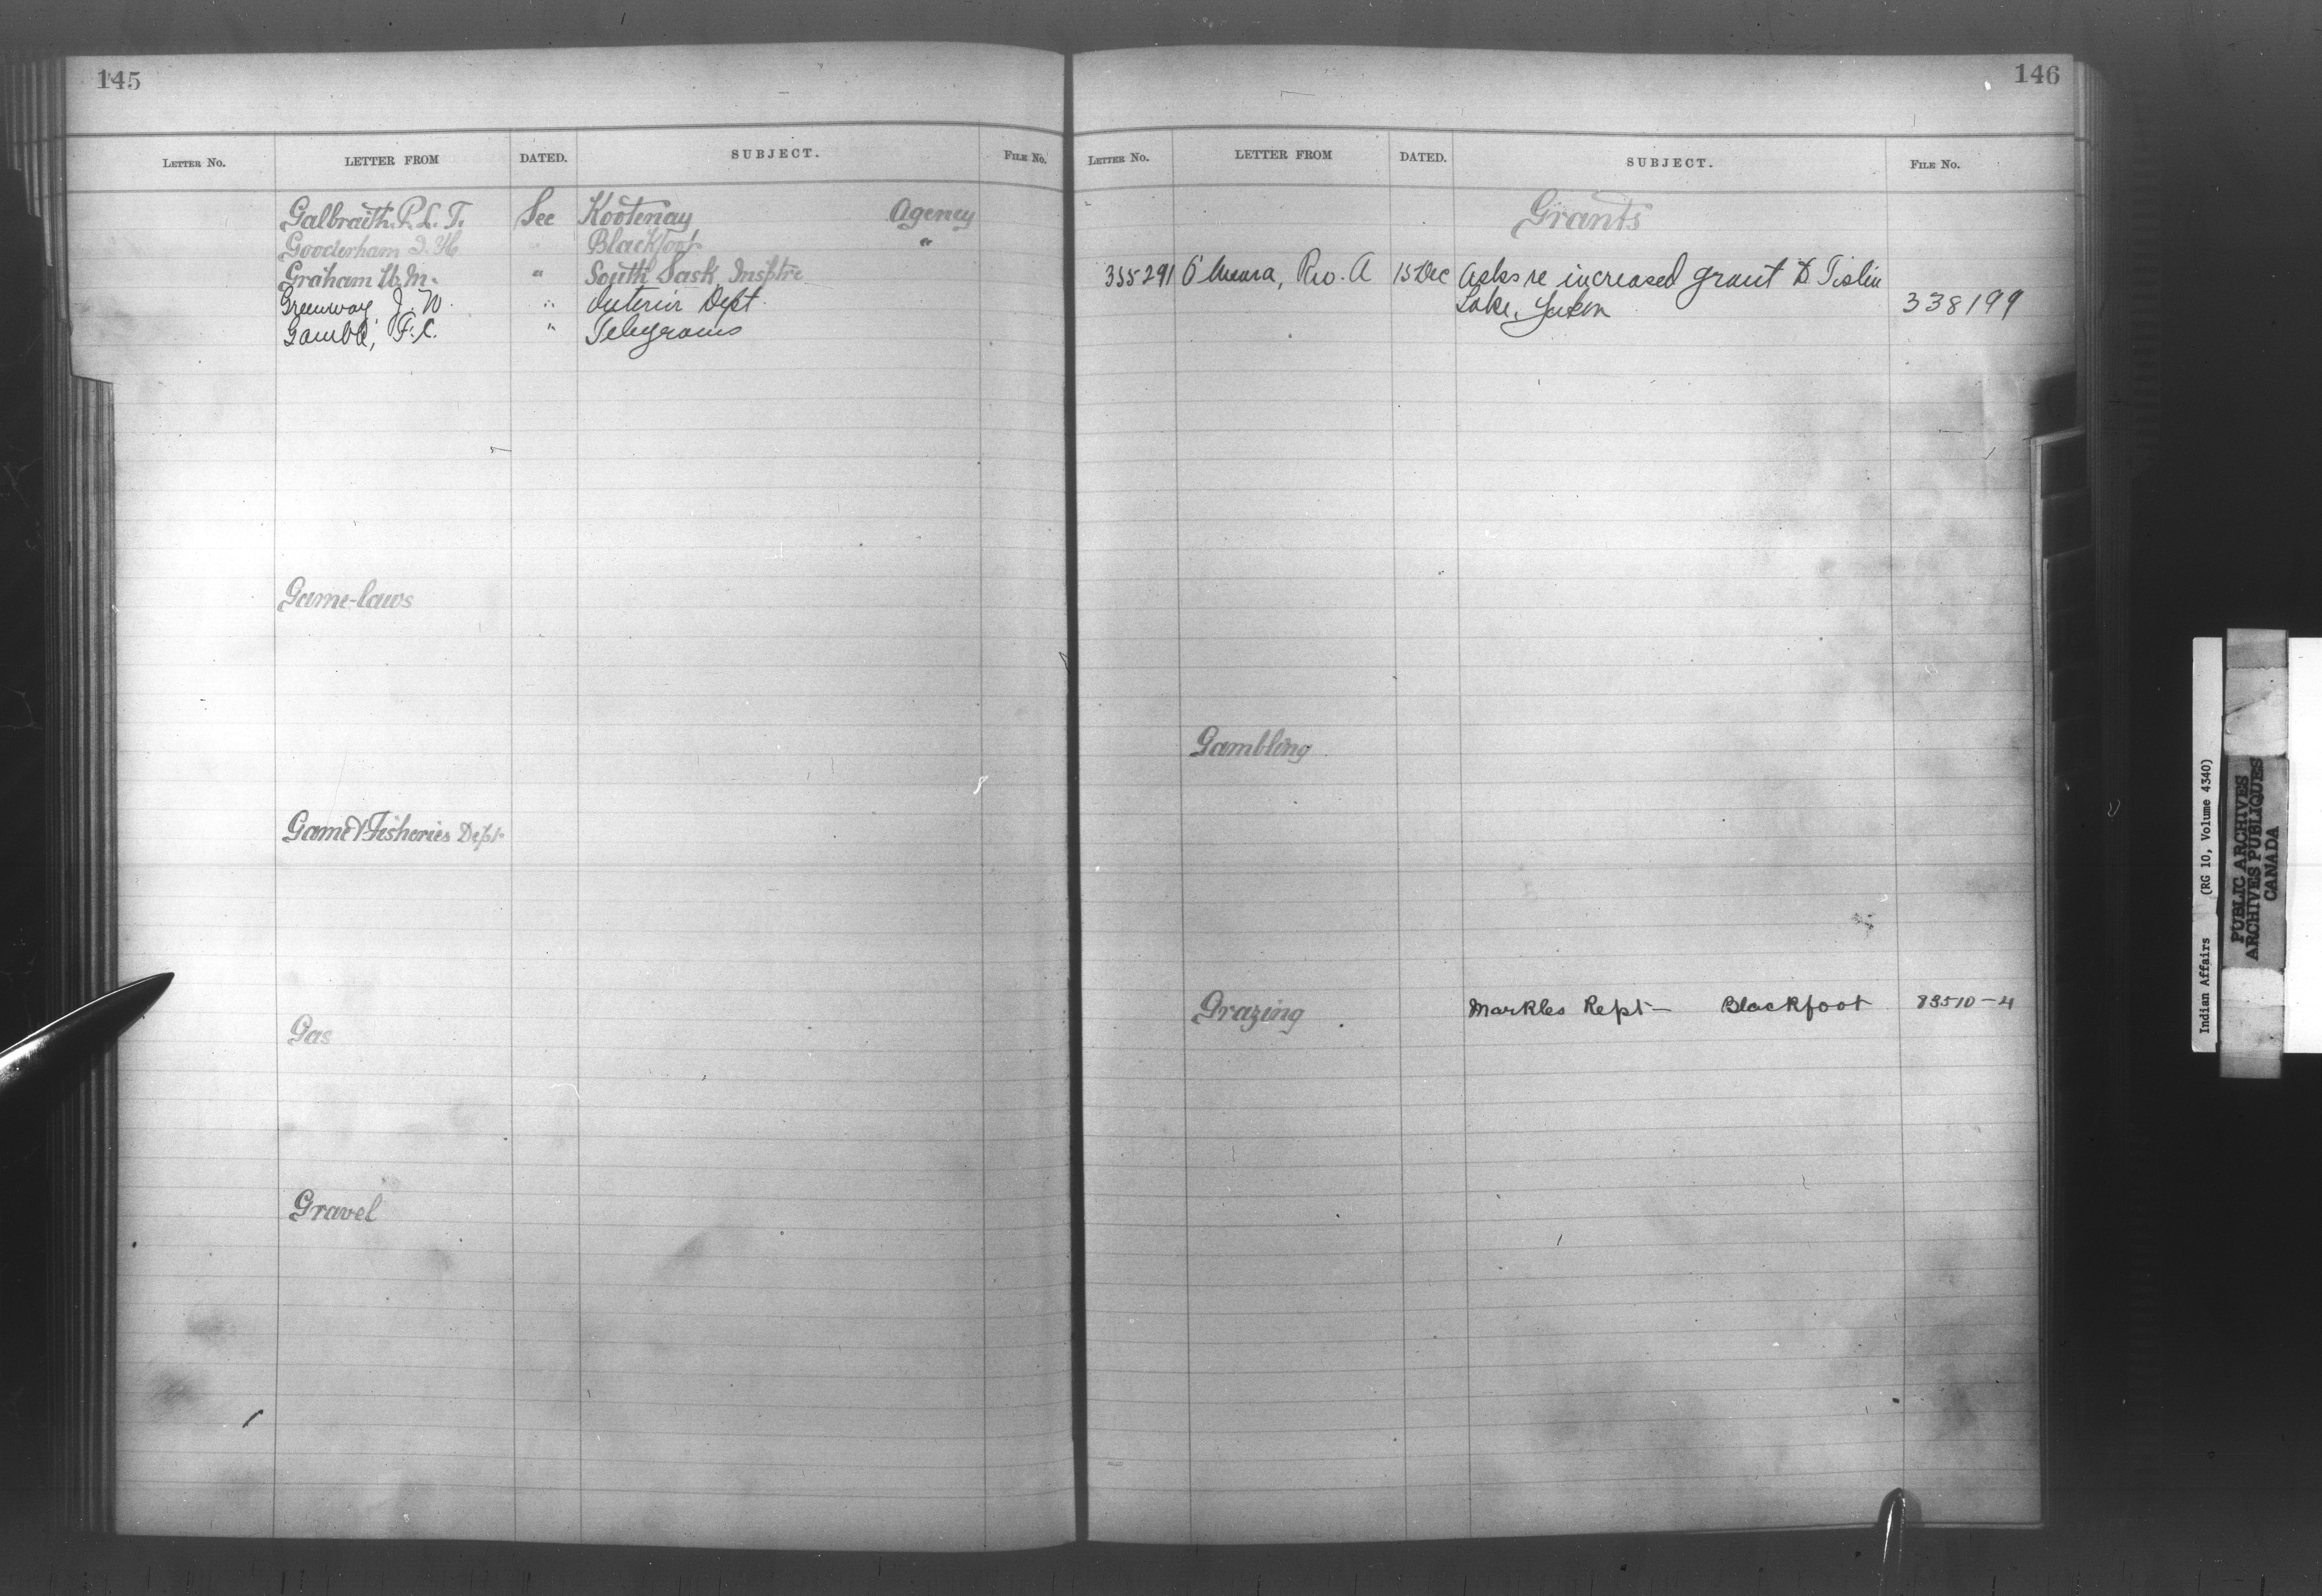 145
LETTER NO. LETTER FROM DATED. SUBJECT. FILE No.
Galbraith. R. L. T. See Kootenay Agency
Gooderham J. H. " Blackfoot "
Graham W. M. " South Sask. Insptre
Greenway, J. W. " Interior Dept.
Gamble, F. C. " Telegrams
Game-laws
Game & Fisheries Dept.
Gas
Gravel
146
LETTER NO. LETTER FROM DATED. SUBJECT. FILE No.
Grants
355291 O'Meara, Rev. A 15 Dec Asks re increased grant to Tislin
Lake, Yukon 338199
Gambling
Grazing Markles Rept- Blackfoot 83510-4
Indian Affairs (RG 10, Volume 4340)
PUBLIC ARCHIVES
ARCHIVES PUBLIQUES
CANADA